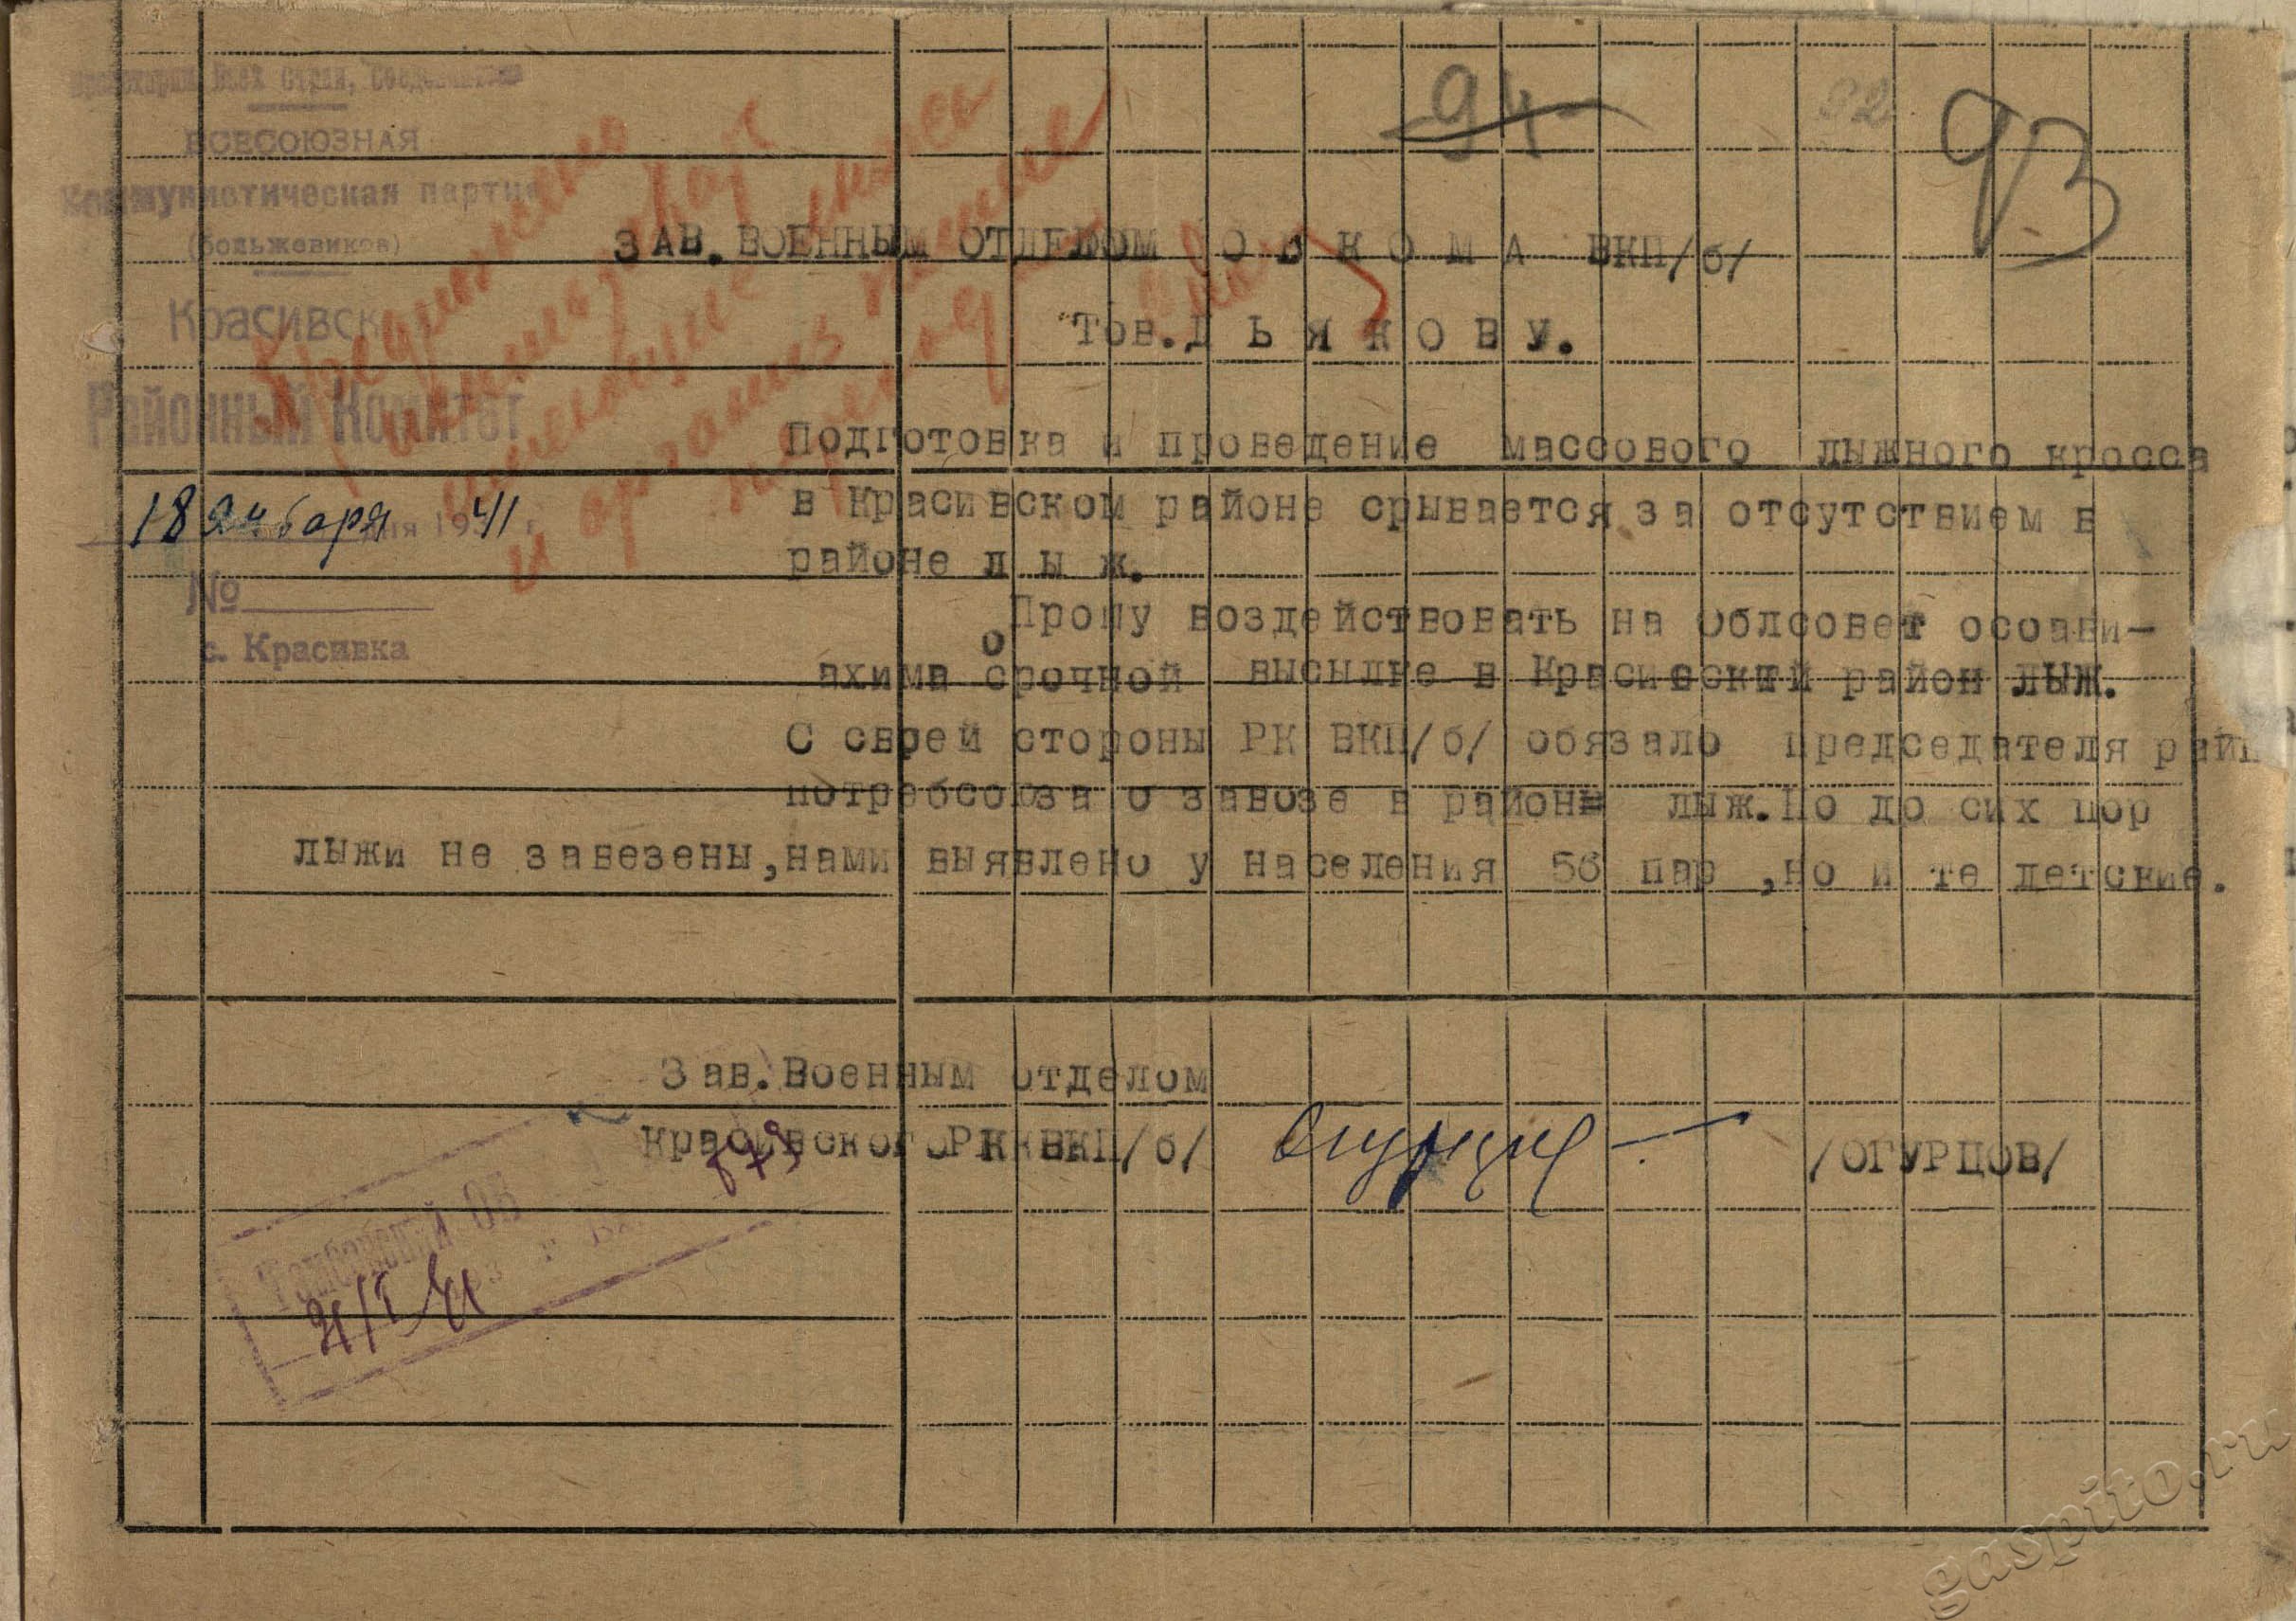 Пролетарии Всех Стран, Соединяйтесь
ВСЕСОЮЗНАЯ
Коммунистическая партия
(большевиков)
Красивск
Районный Комитет
18 января 1941 г.
№
с. Красивка
94
92
93
ЗАВ. ВОЕННЫМ ОТДЕЛОМ О Б К О М А ВКП/б/
Тов. Д Ь Я К О В У.
Предложено
и организ
Подготовка и проведение массового лыжного кросса
в Красивском районе срывается за отсутствием в
районе л ы ж.
Прошу воздействовать на Облсовет осоави-
ахима о срочной высылке в Красивский район лыж.
С своей стороны РК ВКП/б/ обязало председателя рай
потребсоюза о завозе в район лыж. Но до сих пор
лыжи не завезены, нами выявлено у населения 56 пар, но и те детские.
Зав. Военным отделом
Красивского РК ВКП/б/ /ОГУРЦОВ/
Тамбовский ОБ
21/I 41
gaspito.ru